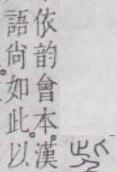 依韵會本漢
語尙如此以